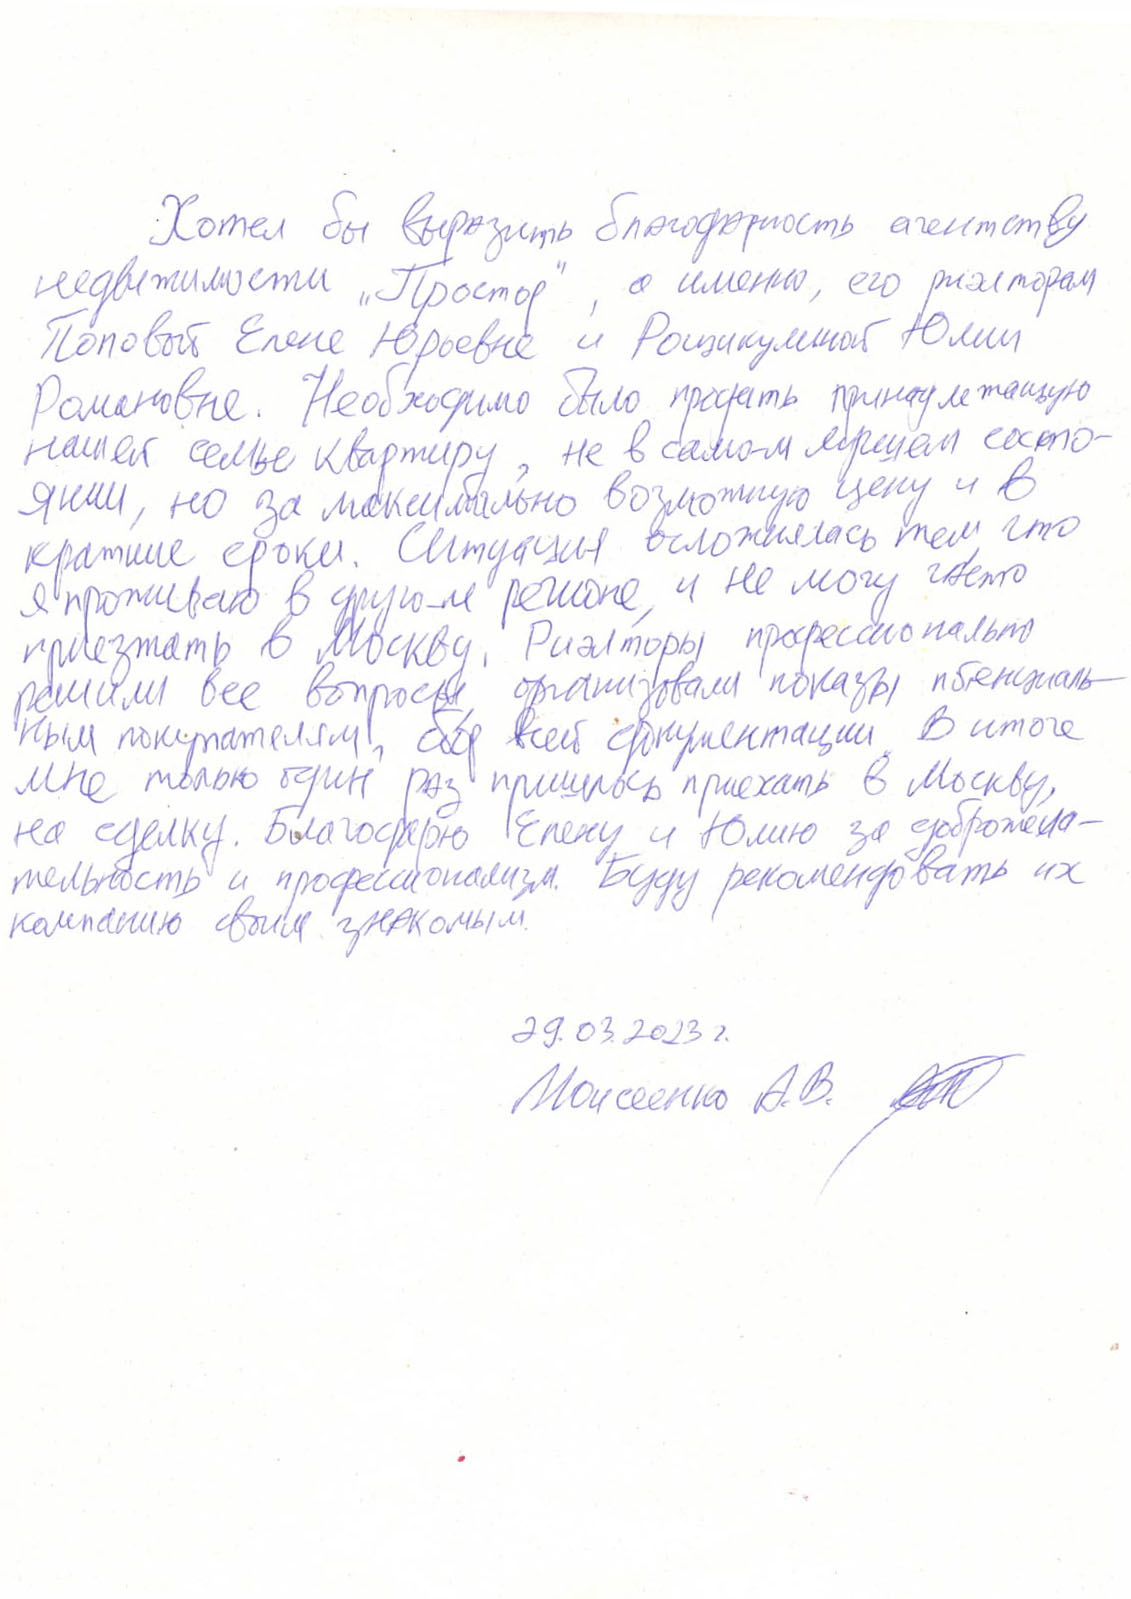 Хотел бы выразить благодарность агентству
недвижимости „Простор", а именно, его риэлторам
Поповой Елене Юрьевне и Рощикулиной Юлии
Романовне. Необходимо было продать принадлежащую
нашей семье квартиру, не в самом лучшем состо-
янии, но за максимально возможную цену и в
краткие сроки. Ситуация осложнялась тем, что
я проживаю в другом регионе, и не могу часто
приезжать в Москву. Риэлторы профессионально
решили все вопросы, организовали показы потенциаль-
ным покупателям, сбор всей документации. В итоге
мне только один раз пришлось приехать в Москву,
на сделку. Благодарю Елену и Юлию за доброжела-
тельность и профессионализм. Буду рекомендовать их
компанию своим знакомым.
29.03.2023 г.
Моисеенко А.В.